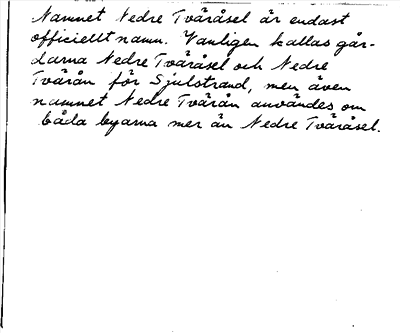 Namnet Nedre Tväråsel är endast
officiellt namn. Vanligen kallas går-
darna Nedre Tväråsel och Nedre
Tvärån för Sjulstrand, men även
namnet Nedre Tvärån användes om
båda byarna mer än Nedre Tväråsel.